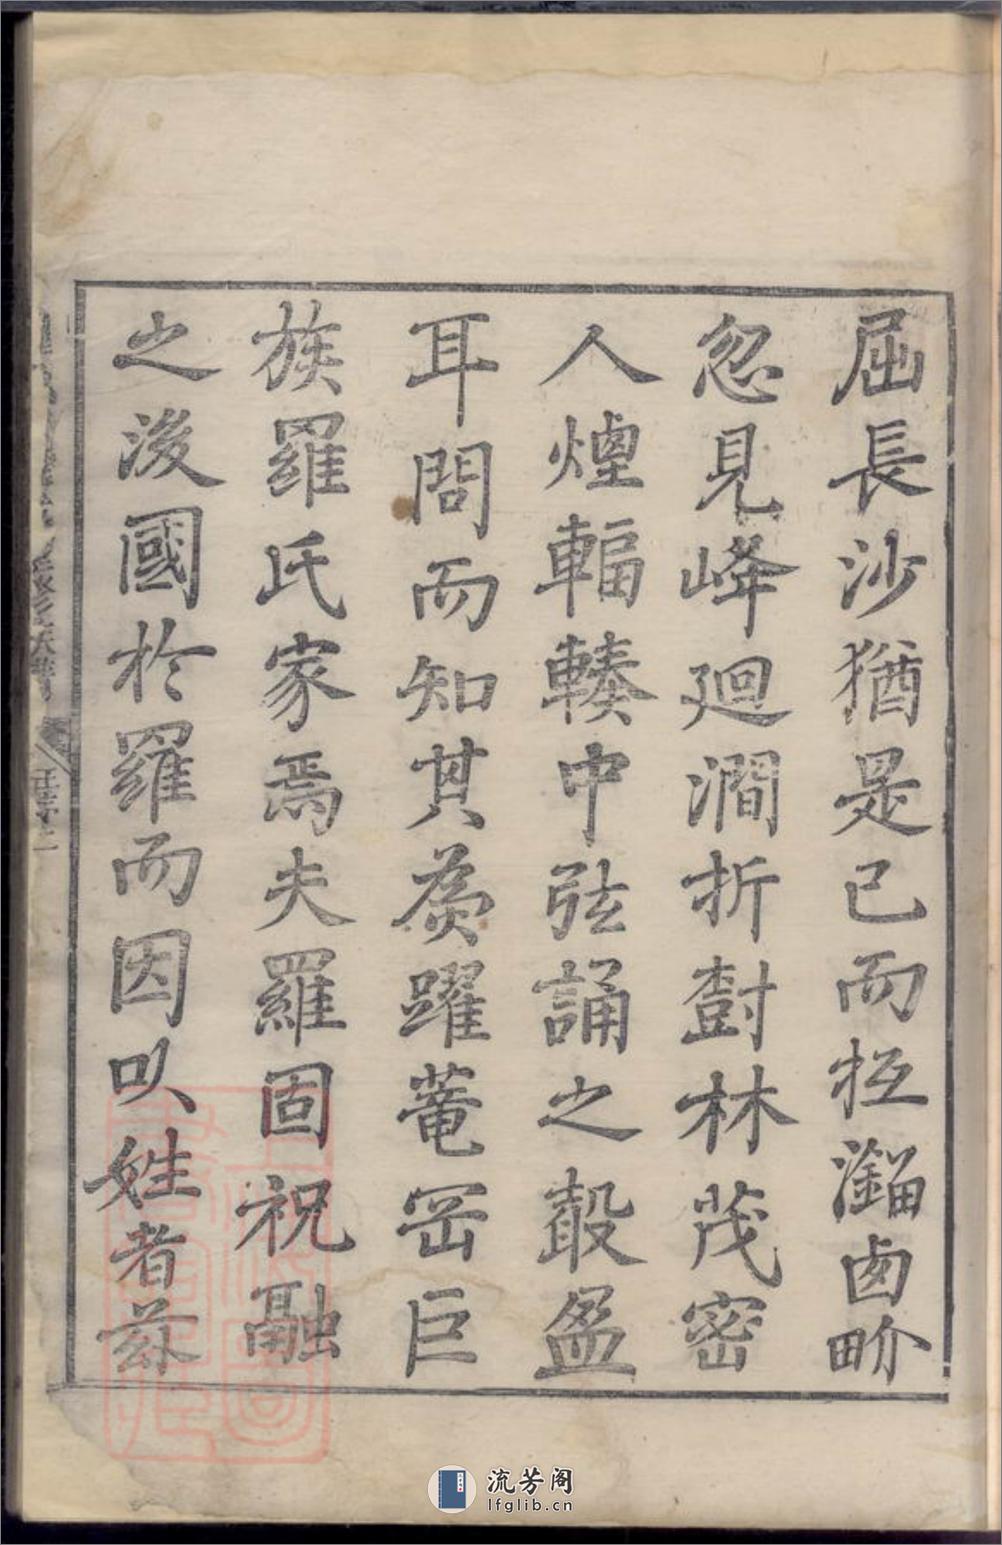 屈長沙猶是已而抵淄㐫畍
忽見峰迴澗折樹林茂密
人煙輻輳中弦誦之聲盈
耳問而知其為躍菴岡巨
族羅氏家焉夫羅固祝融
之後國於羅而因以姓者茲
流芳阁
lfglib.cn